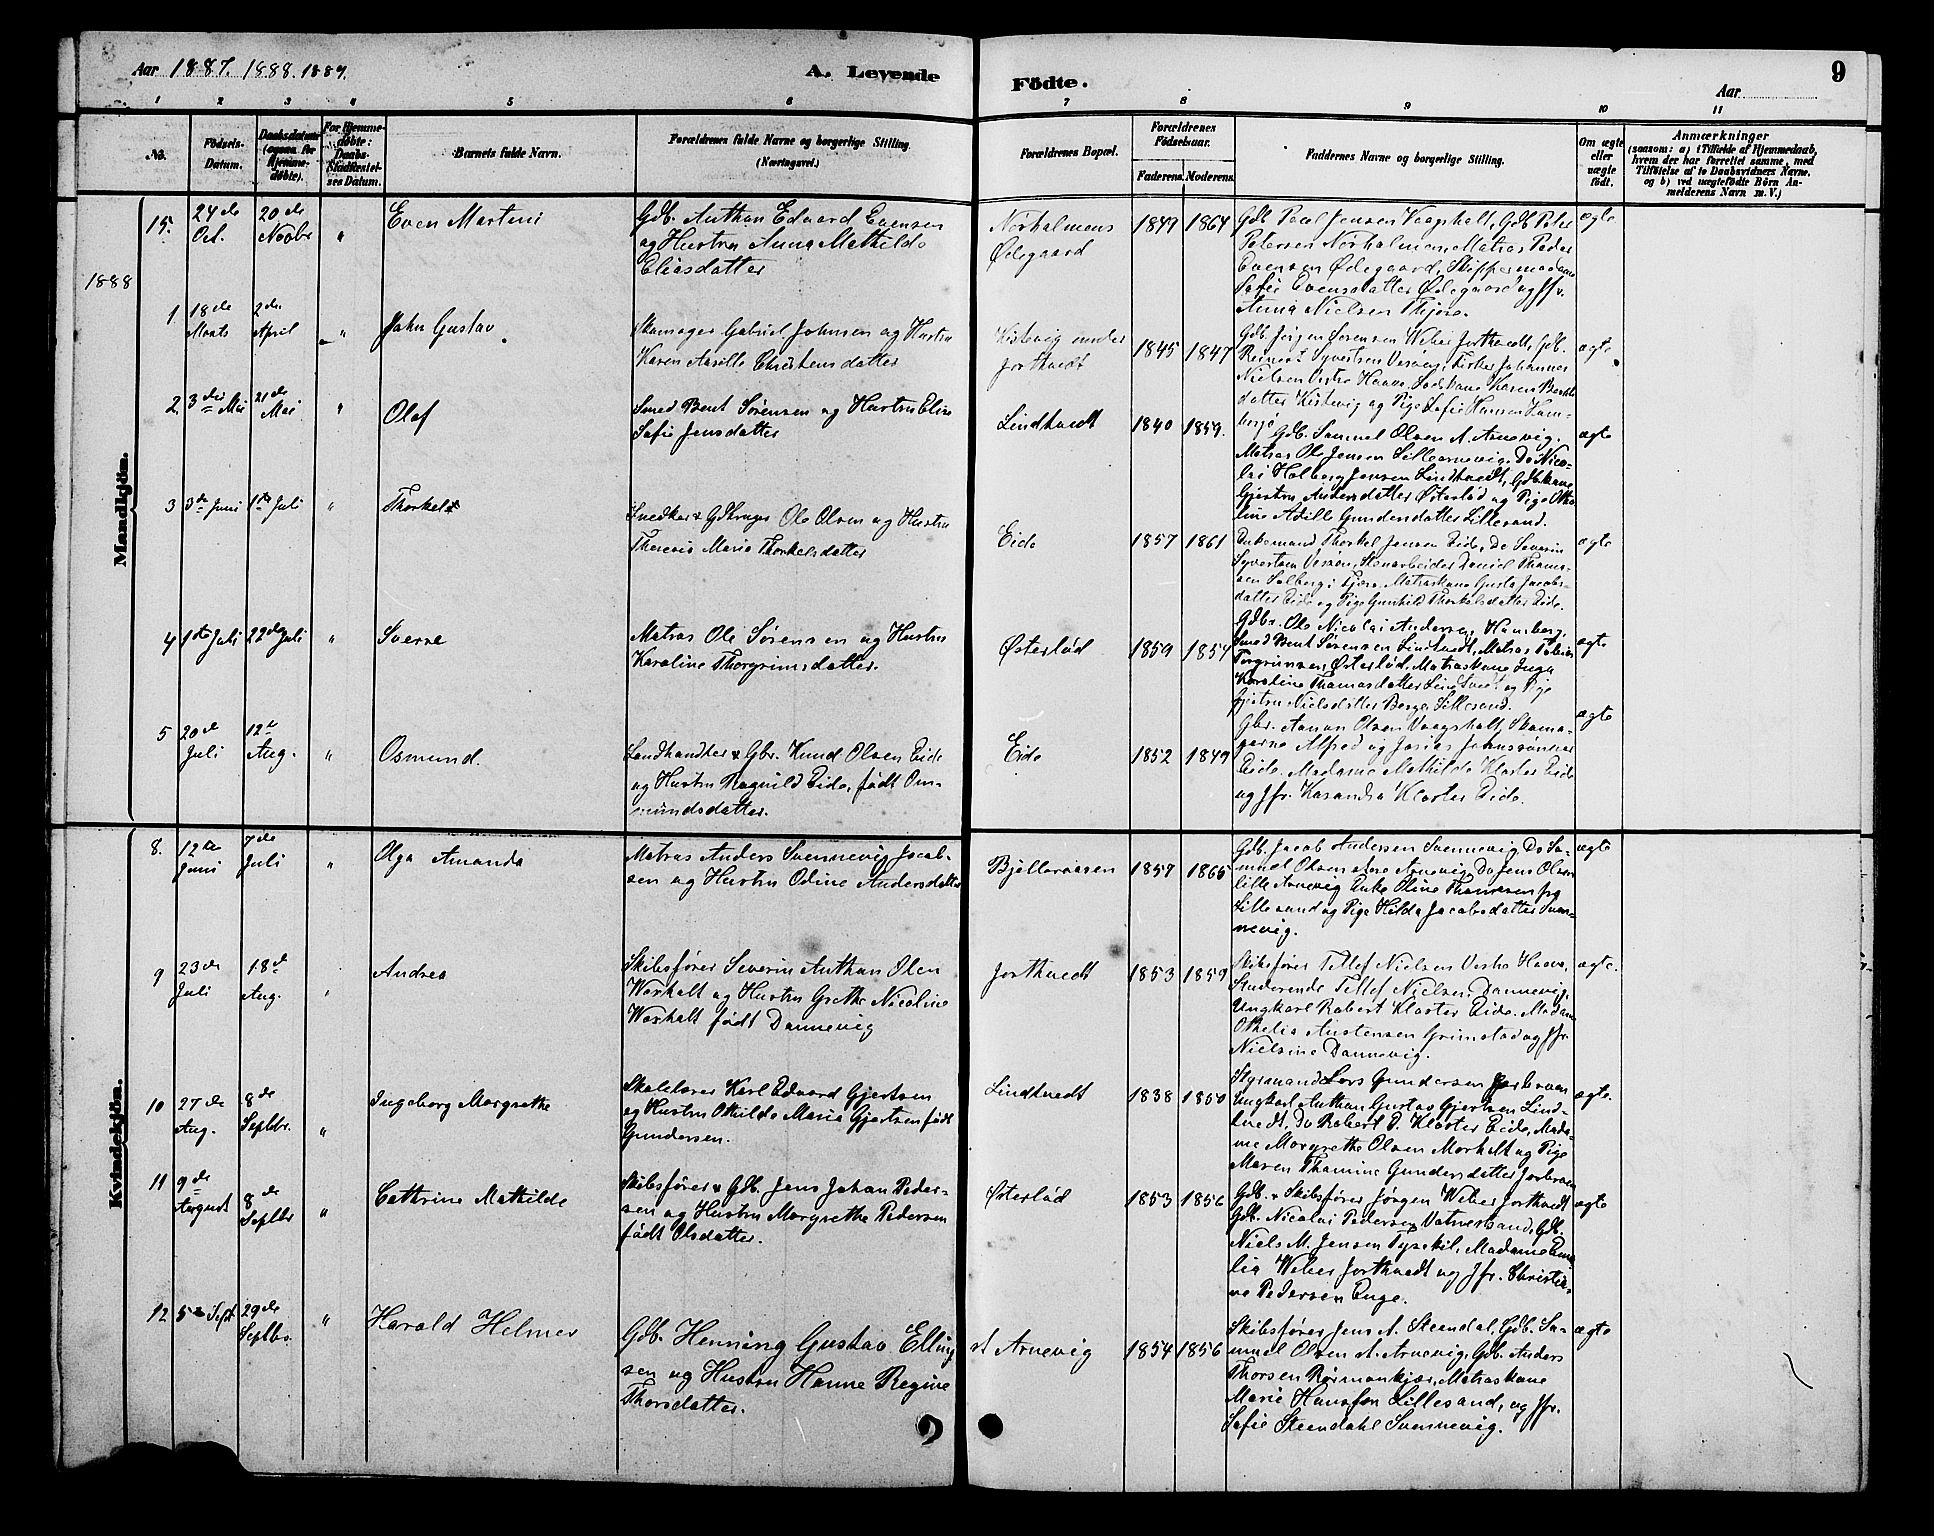 Aar 1887. 1888. 1889.
A. Levende
Födte.
Aar
9
1 2 3 4 5 6 7 8 9 10 11
No.
Födsels-
Datum.
Daabsdatum
(ogsaa for
Hjemme-
døbte).
For Hjemme-
døbte:
Daabs-
Stadfæstel-
ses Datum.
Barnets fulde Navn.
Forældrenes fulde Navne og borgerlige Stilling
(Næringsvei.)
Forældrenes Bopæl.
Forældrenes
Fødselsaar.
Faderens. Moderens.
Faddernes Navne og borgerlig Stilling.
Om ægte
eller
uægte
født.
Anmærkninger
(saasom: a) i Tilfælde af Hjemmedaab,
hvem der har forrettet samme, med
Tilføielse af to Daabsvidners Navne,
og b) ved uægtefødte Börn An-
melderens Navn m. V.)
Mandkjön.
15. 24de Oct. 20de Novbr. " Even Martini
Gdb. Anthon Edvard Evensen
og Hustru Anna Mathilde
Eliasdatter
Nørholmens
Ødegaard
1849 1864
Gdb. Poul Jensen Vaagsholt, Gdb. Peter
Petersen Nørholmen, Matros Peder
Evensen Ødegaard, Skippermadame
Sofie Evensdatter Ødegaard og Jfr.
Anna Nielsen Thjøre.
ægte
1888
1 18de Marts 2den April " John Gustav
Skomager Gabriel Johnsen og Hustru
Karen Aasille Christensdatter
Kistevig under
Jorthvedt
1845 1847
Gdb. Jørgen Sørensen Weber Jorthvedt, Gdb.
Reinert Syvertsen Vesøen, Fisker Johannes
Nielsen Vestre Haave, Kone Karen Bentsdatter
Kistevig og Pige Sofie Hansen Hamberg
ægte
2 3die Mai 21de Mai " Olaf
Smed Bent Sørensen og Hustru Elise
Sofie Jensdatter
Lindtvedt
1840 1859.
Gdb. Samuel Olsen st. Arnevig.
Matros Ole Jensen Lillearnevig, Do Nico-
lai Holberg Jensen Lindtvedt, Gdbkone
Gjertru Andersdatter Østerlød og Pige Otha-
line Adille Gundersdatter Lillesand.
ægte
3 3de Juni 1ste Juli " Thorkel
Snedker & Gdbruger Ole Olsen og Hustru
Theresia Marie Thorkelsdatter
Eide
1857 1861
Enkemand Thorkel Jensen Eide, Do Severin
Syvertsen Vesøen, Stenarbeider Daniel Thoma-
sen Solberg i Fjære, Matroskone Gusta Jacobs-
datter Eide og Pige Gunhild Thorkelsdatter Eide.
ægte
4 1ste Juli 22de Juli " Sverre
Matros Ole Sørensen og Hustru
Karoline Thorgrimsdatter.
Østerlød
1859 1854
Gdbr. Ole Nicolai Andersen Hamberg,
Smed Bent Sørensen Lindtvedt, Matros Tobias
Torgrimsen Østerlød, Matroskone Inga
Karoline Thomasdatter Lindtvedt og Pige
Gjertru Nielsdatter Berge Lillesand.
ægte
5 20de Juli 12te Aug. " Osmund.
Landhandler & Gbr. Knud Olsen Eide
og Hustru Ragnild Eide, født Om-
mundsdatter.
Eide
1852 1849
Gbr. Aanon Olsen Vaagsholt, Skoma-
gerne Alfred og Josias Johnssønner
Eide. Madame Mathilde Kloster Eide
og Jfr. Kasandra Kloster Eide.
ægte
Kvindekjön.
8. 12te Juni 7de Juli " Olga Amanda
Matros Anders Svennevig Jacob-
sen og Hustru Odine Andersdatter
Bjelleraasen
1857 1865
Gdb. Jacob Andersen Svennevig, Do Sa-
muel Olsen store Arnevig, Do Jens Olsen
lille Arnevig, Enke Oline Thomesen fra
Lillesand og Pige Hilda Jacobsdatter Sven-
nevig.
ægte
9 23de Juli 18de Aug. " Andrea
Skibsfører Severin Anthon Olen
Woxholt og Hustru Grethe Nicoline
Woxholt født Dannevig
Jorthvedt
1853 1859
Skibsfører Tellef Nielsen Vestre Haave,
Studerende Tellef Nielsen Dannevig,
Ungkarl Robert Kloster Eide. Madame
Othelia Austensen Grimstad og Jfr.
Nielsine Dannevig.
ægte.
10 27de Aug. 8de Septbr. " Ingeborg Margrethe
Skolelærer Karl Edvard Gjertsen
og Hustru Othilde Maria Gjertsen født
Gundersen.
Lindtvedt
1838 1850
Styrmand Lars Gundersen
Ungkarl Anthon Gustav Gjertsen Lind-
tvedt, Do Robert P. Kloster Eide, Mada-
me Margrethe Olsen Morholt og Pige
Maren Thomine Gundersdatter
ægte.
11 9de August 8de Septbr " Cathrine Mathilde
Skibsfører & Gdb. Jens Johan Peder-
sen og Hustru Margrethe Pedersen
født Olsdatter.
Østerlød
1853 1856
Gdb. & Skibsfører Jørgen Weber Jorthvedt
Gdb. Nicolai Pedersen Vatnestrand, Gdb.
Niels M. Jensen Tyskil, Madame Emi-
lia Weber Jorthvedt og Jfr. Christi-
ne Pedersen Enge.
ægte
12 5te Sept 29de Septbr. " Harald Helmer
Gdb. Henning Gustav Elling-
sen og Hustru Hanne Regine
Thorsdatter.
st Arnevig
1854 1856
Skibsfører Jens A. Steendal, Gdb. Sa-
muel Olsen st. Arnevig, Gdb. Anders
Thorsen Rørmonkjær, Matroskone
Marie Hansson Lillesand, og Jfr.
Sofie Steendahl Svennevig.
ægte